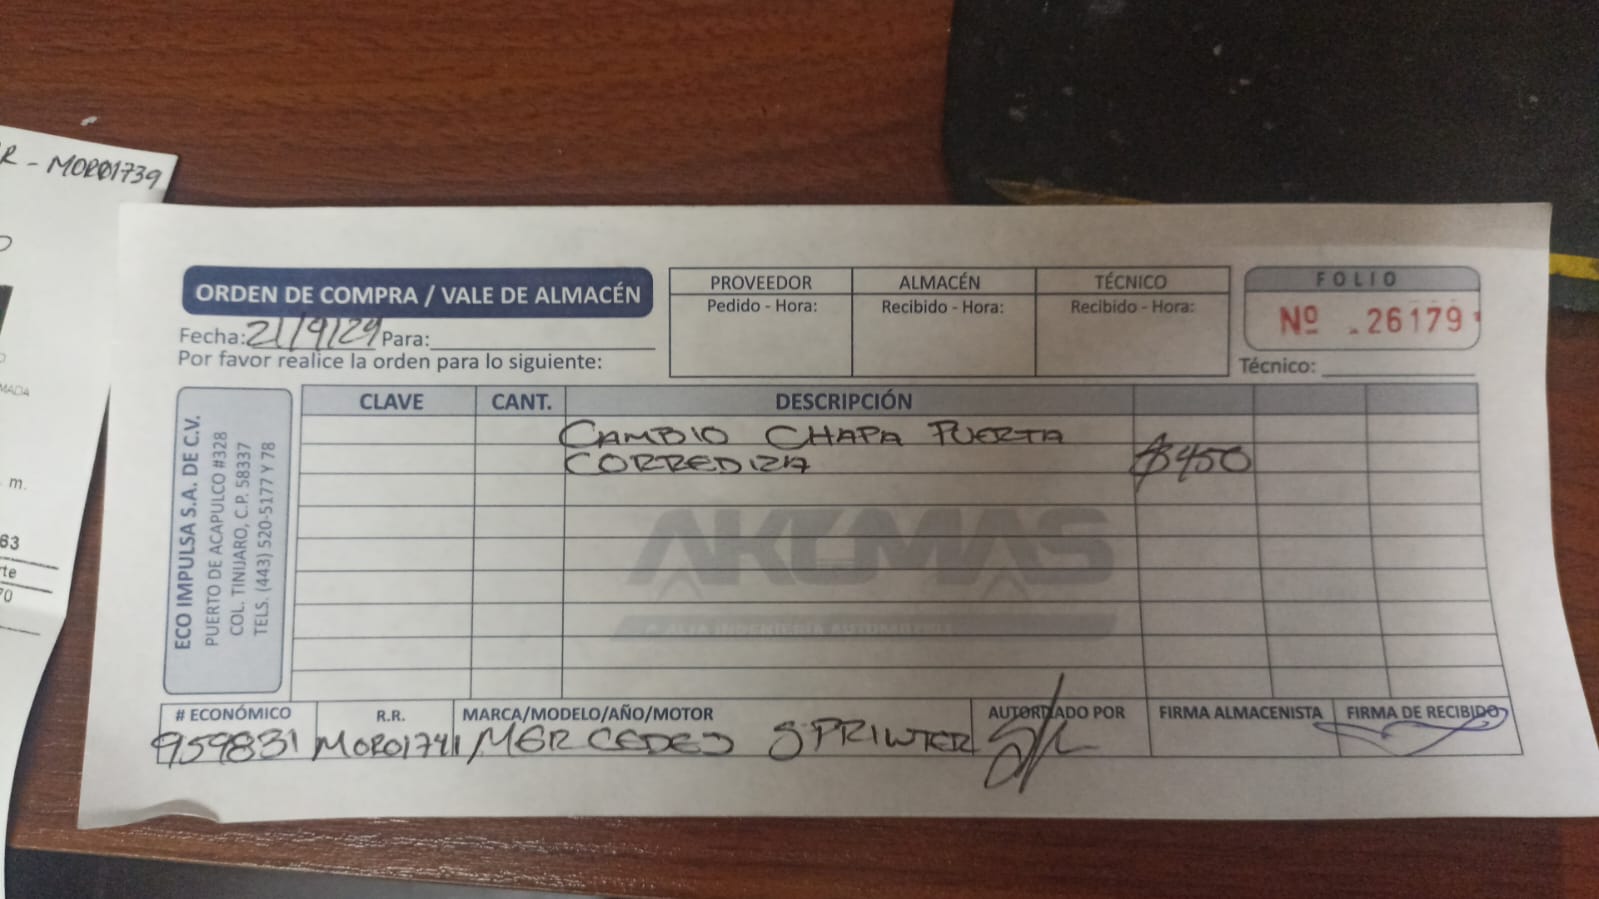 R - MOR01739
MADA
m.
63
rte
70
ORDEN DE COMPRA / VALE DE ALMACÉN
Fecha: 21/9/24 Para:
Por favor realice la orden para lo siguiente:
PROVEEDOR ALMACÉN TÉCNICO
Pedido - Hora: Recibido - Hora: Recibido - Hora:
FOLIO
Nº 26179
Técnico:
ECO IMPULSA S.A. DE C.V.
PUERTO DE ACAPULCO #328
COL. TINIJARO, C.P. 58337
TELS. (443) 520-5177 Y 78
CLAVE CANT. DESCRIPCIÓN
CAMBIO CHAPA PUERTA
CORREDIZA $450
AKUMAS
LA ALTA INGENIERÍA AUTOMOTRIZ
# ECONÓMICO R.R. MARCA/MODELO/AÑO/MOTOR AUTORIZADO POR FIRMA ALMACENISTA FIRMA DE RECIBIDO
959831 MOR01741 MERCEDES SPRINTER